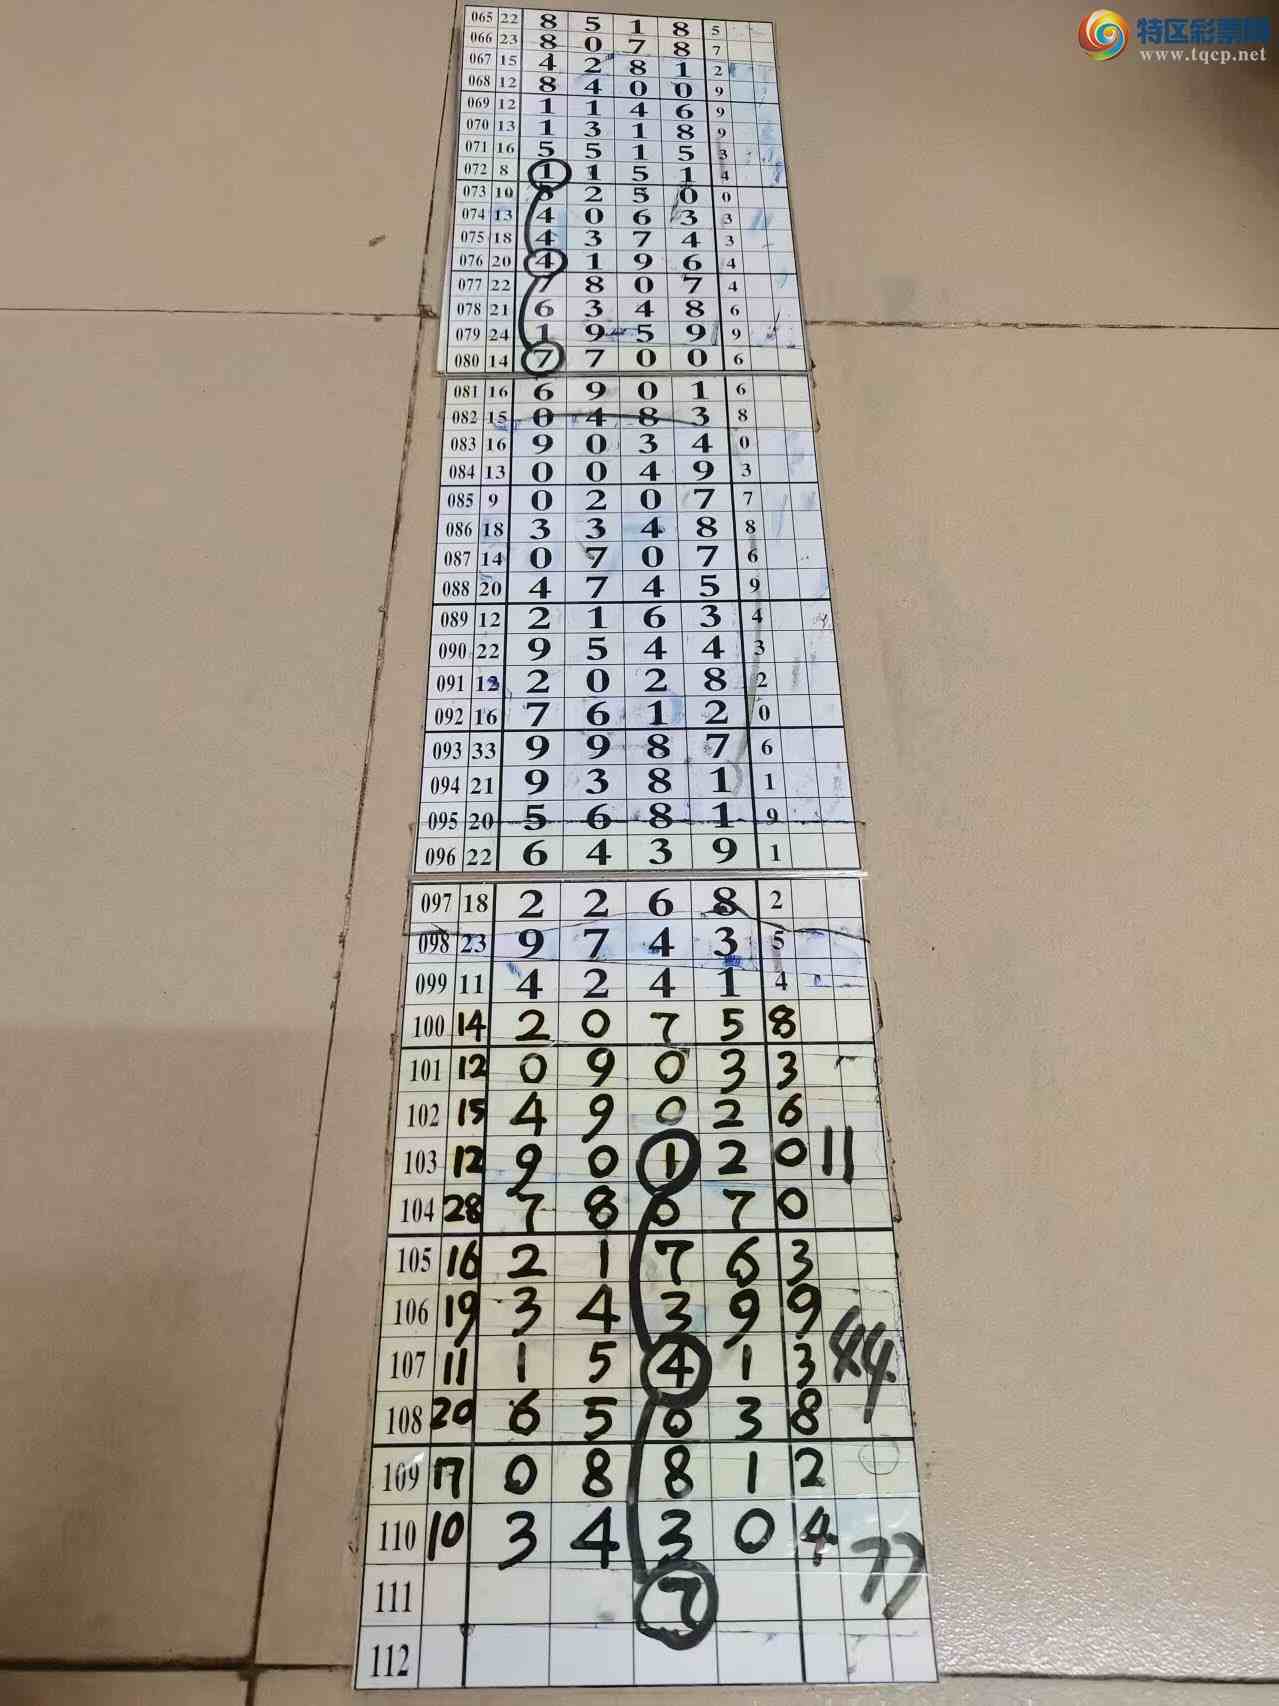 特区彩票网
www.tqcp.net
065 22 8 5 1 8 5
066 23 8 0 7 8 7
067 15 4 2 8 1 2
068 12 8 4 0 0 9
069 12 1 1 4 6 9
070 13 1 3 1 8 9
071 16 5 5 1 5 3
072 8 1 1 5 1 4
073 10 2 5 0 0
074 13 4 0 6 3 3
075 18 4 3 7 4 3
076 20 4 1 9 6 4
077 22 7 8 0 7 4
078 21 6 3 4 8 6
079 24 1 9 5 9 9
080 14 7 7 0 0 6
081 16 6 9 0 1 6
082 15 0 4 8 3 8
083 16 9 0 3 4 0
084 13 0 0 4 9 3
085 9 0 2 0 7 7
086 18 3 3 4 8 8
087 14 0 7 0 7 6
088 20 4 7 4 5 9
089 12 2 1 6 3 4
090 22 9 5 4 4 3
091 12 2 0 2 8 2
092 16 7 6 1 2 0
093 33 9 9 8 7 6
094 21 9 3 8 1 1
095 20 5 6 8 1 9
096 22 6 4 3 9 1
097 18 2 2 6 8 2
098 23 9 7 4 3 5
099 11 4 2 4 1 4
100 14 2 0 7 5 8
101 12 0 9 0 3 3
102 15 4 9 0 2 6
103 12 9 0 1 2 0 11
104 28 7 8 6 7 0
105 16 2 1 7 6 3
106 19 3 4 3 9 9
107 11 1 5 4 1 3 44
108 20 6 5 6 3 8
109 17 0 8 8 1 2
110 10 3 4 3 0 4
111 7 77
112